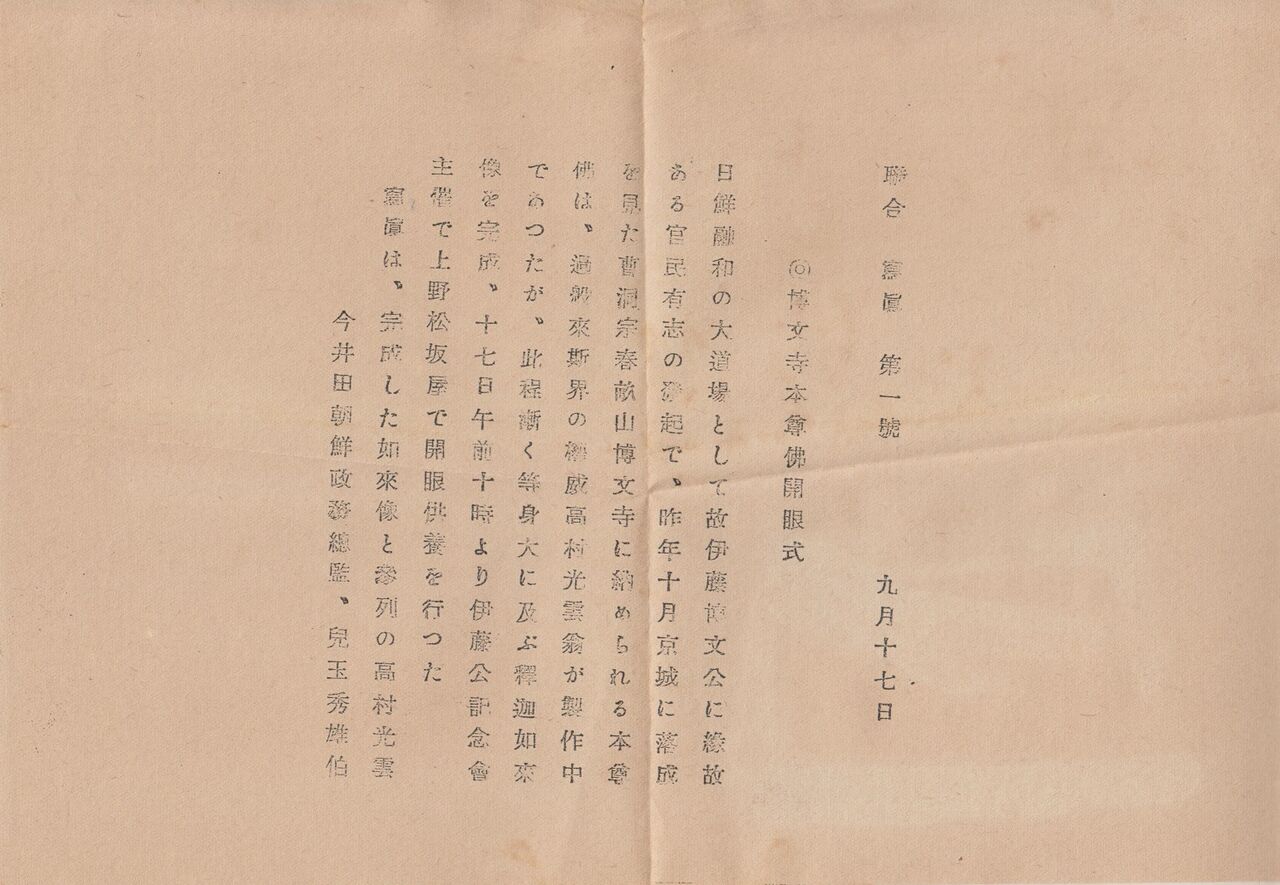 聯合寫眞 第一號 九月十七日
◎博文寺本尊佛開眼式
日鮮融和の大道場として故伊藤博文公に緣故
ある官民有志の發起で、昨年十月京城に落成
を見た曹洞宗春畝山博文寺に納められる本尊
佛は、過般來斯界の權威高村光雲翁が製作中
であつたが、此程漸く等身大に及ぶ釋迦如來
像を完成、十七日午前十時より伊藤公記念會
主催で上野松坂屋で開眼供養を行つた
寫眞は、完成した如來像と參列の高村光雲
今井田朝鮮政務總監、兒玉秀雄伯